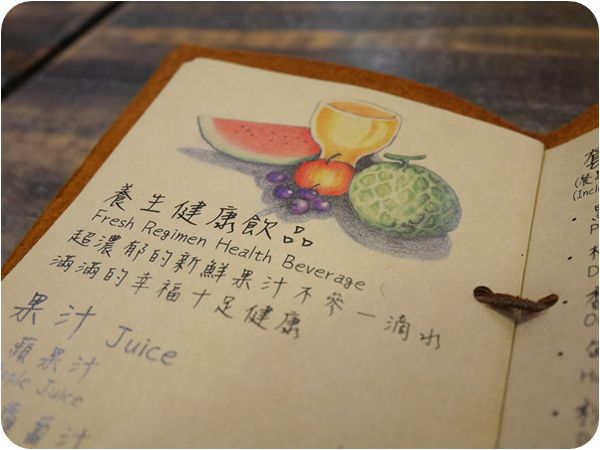 養生健康飲品
Fresh Regimen Health Beverage
超濃郁的新鮮果汁不參一滴水
滿滿的幸福十足健康
果汁 Juice
蘋果汁
Apple Juice